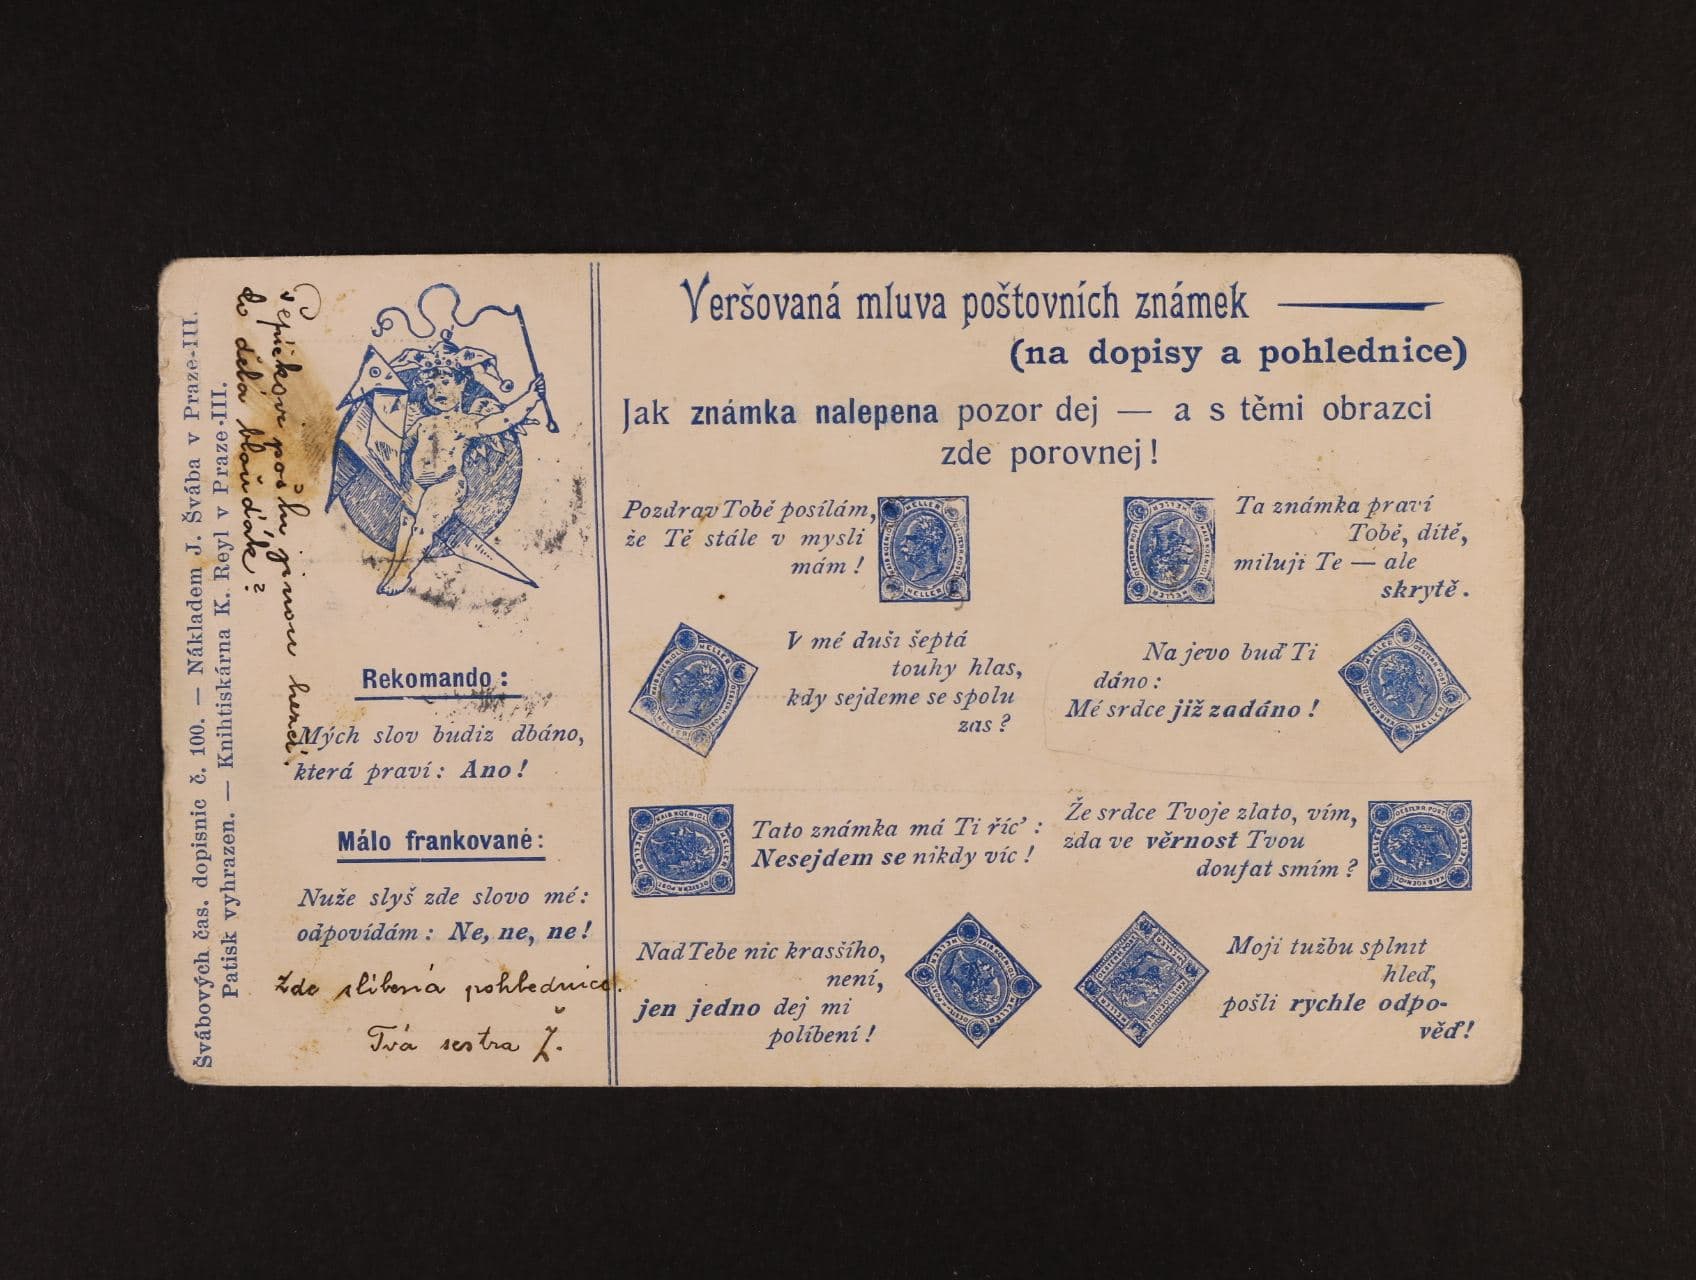 Švábových čas. dopisnic č. 100. — Nákladem J. Švába v Praze-III.
Patisk vyhrazen. — Knihtiskárna K. Reyl v Praze-III.
Pepíčkovi pošlu jinou
co dělá bouďák?
Rekomando:
Mých slov budiz dbáno,
která praví: Ano!
Málo frankované:
Nuže slyš zde slovo mé:
odpovídám: Ne, ne, ne!
Zde slíbená pohlednice.
Tvá sestra Ž.
Veršovaná mluva poštovních známek
(na dopisy a pohlednice)
Jak známka nalepena pozor dej — a s těmi obrazci
zde porovnej!
Pozdrav Tobě posílám,
že Tě stále v mysli
mám!
Ta známka praví
Tobě, dítě,
miluji Te — ale
skrytě.
V mé duši šeptá
touhy hlas,
kdy sejdeme se spolu
zas?
Na jevo buď Ti
dáno:
Mé srdce již zadáno!
Tato známka má Ti říc':
Nesejdem se nikdy víc!
Že srdce Tvoje zlato, vím,
zda ve věrnost Tvou
doufat smím?
Nad Tebe nic krasšího,
není,
jen jedno dej mi
políbení!
Moji tužbu splnit
hleď,
pošli rychle odpo-
věď!